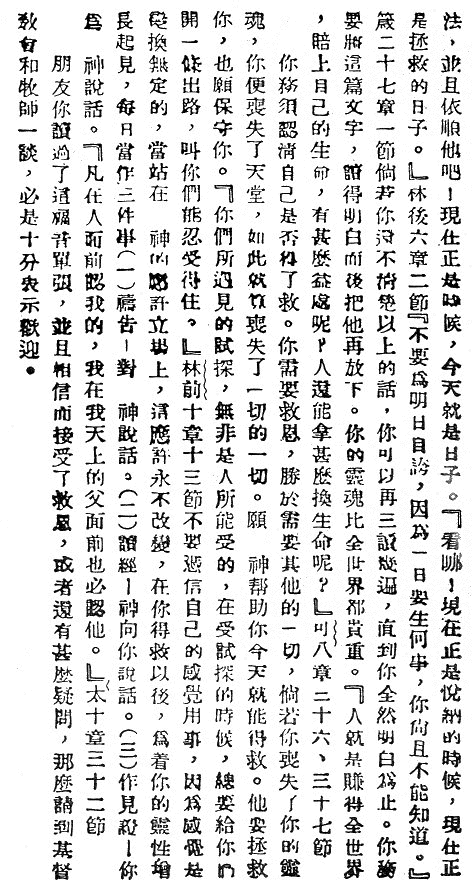 法，並且依順他吧！現在正是時候，今天就是日子。『看哪！現在正是悅納的時候，現在正
是拯救的日子。』林後六章二節『不要爲明日自誇，因爲一日要生何事，你尙且不能知道。』
箴二十七章一節倘若你還不清楚以上的話，你可以再三讀幾遍，直到你全然明白爲止。你務
要將這篇文字，讀得明白而後把他再放下。你的靈魂比全世界都貴重。『人就是賺得全世界
，賠上自己的生命，有甚麼益處呢？人還能拿甚麼換生命呢？』可八章二十六、三十七節
你務須認清自己是否得了救。你需要救恩，勝於需要其他的一切，倘若你喪失了你的靈
魂，你便喪失了天堂，如此就算喪失了一切的一切。願　神帮助你今天就能得救。他要拯救
你，也願保守你。『你們所遇見的試探，無非是人所能受的，在受試探的時候，總要給你們
開一條出路，叫你們能忍受得住。』林前十章十三節不要憑信自己的感覺用事，因爲感覺是
變換無定的，當站在　神的應許立場上，這應許永不改變，在你得救以後，爲着你的靈性增
長起見，每日當作三件事（一）禱告！對　神說話。（二）讀經！神向你說話。（三）作見證！你
爲　神說話。『凡在人面前認我的，我在我天上的父面前也必認他。』太十章三十二節
朋友你讀過了這福音單張，並且相信而接受了救恩，或者還有甚麼疑問，那麼請到基督
敎會和牧師一談，必是十分表示歡迎。